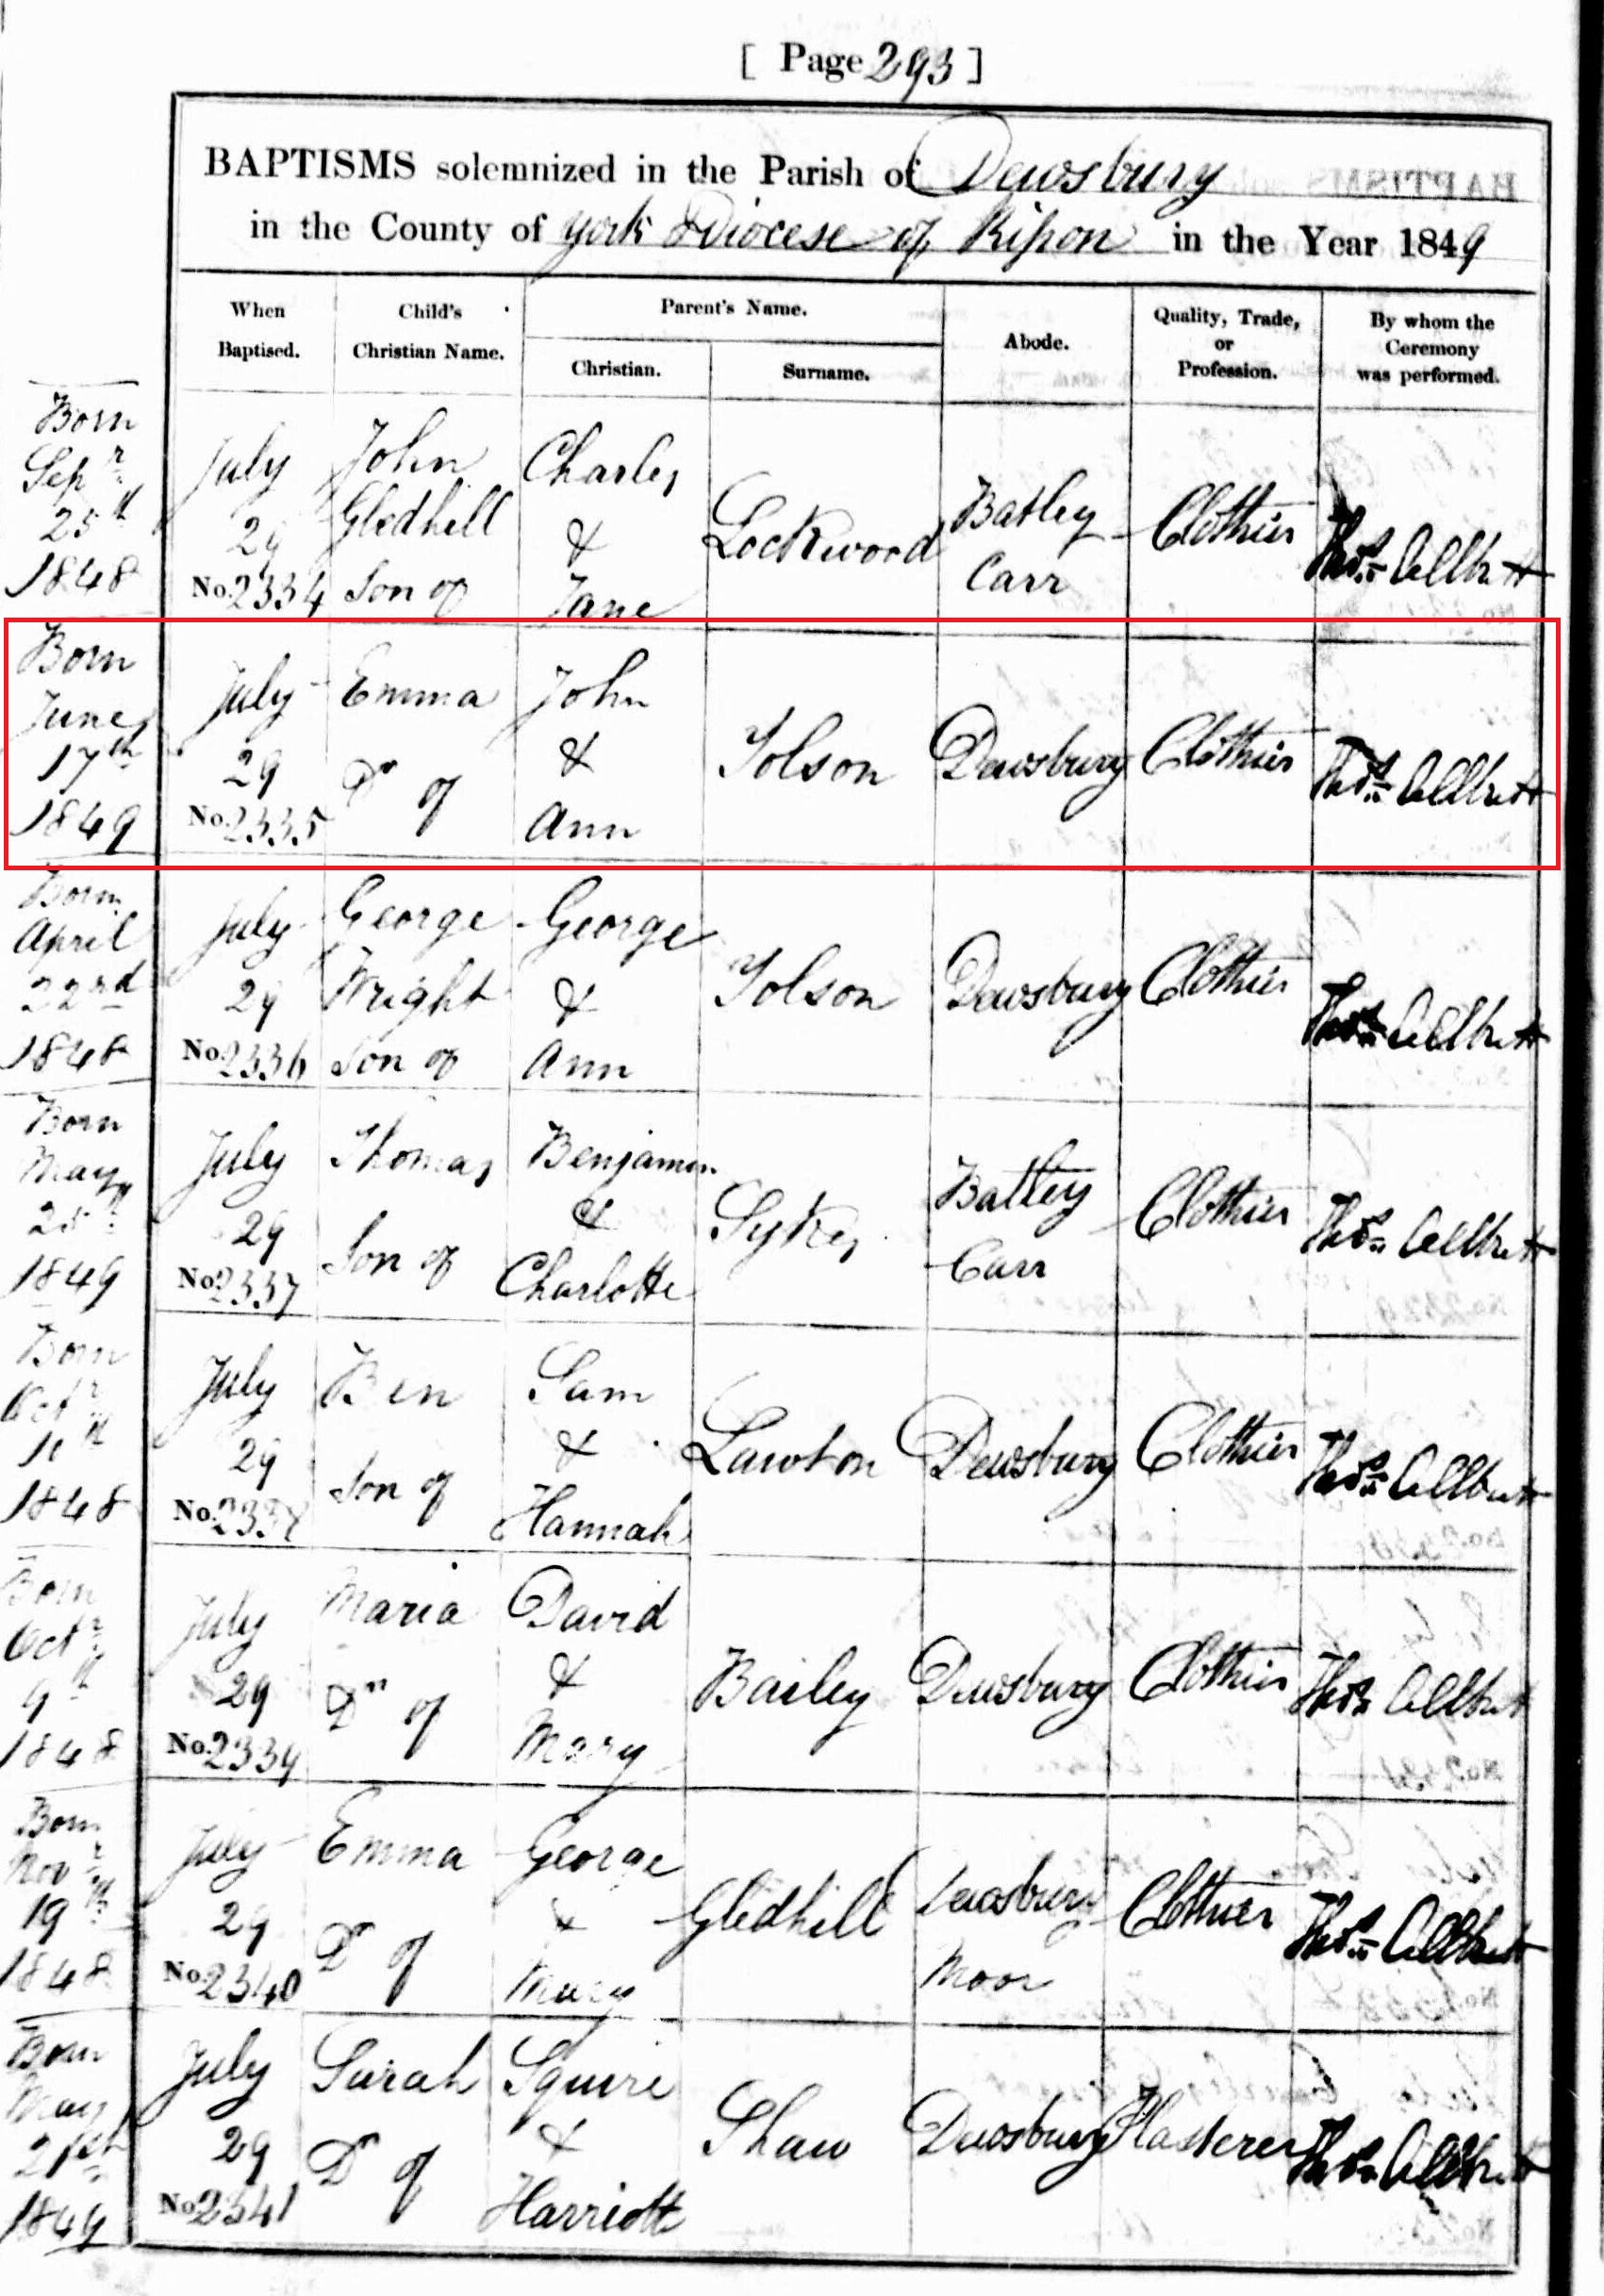 [ Page 293 ]
BAPTISMS solemnized in the Parish of Dewsbury
in the County of York & Diocese of Ripon in the Year 1849
When Baptised.
Child's Christian Name.
Parent's Name.
Christian.
Surname.
Abode.
Quality, Trade, or Profession.
By whom the Ceremony was performed.
Born
Sepr
25th
1848
July
29
No. 2334
John
Gledhill
Son of
Charles
&
Jane
Lockwood
Batley
Carr
Clothier
Thos Allbutt
Born
June
17th
1849
July
29
No. 2335
Emma
Dr of
John
&
Ann
Tolson
Dewsbury
Clothier
Thos Allbutt
Born
April
22nd
1848
July
29
No. 2336
George
Wright
Son of
George
&
Ann
Tolson
Dewsbury
Clothier
Thos Allbutt
Born
May
1849
July
29
No. 2337
Thomas
Son of
Benjamin
&
Charlotte
Sykes
Batley
Carr
Clothier
Thos Allbutt
Born
Octr
1848
July
29
No. 2338
Ben
Son of
Sam
&
Hannah
Lawton
Dewsbury
Clothier
Thos Allbutt
Born
Octr
9th
1848
July
29
No. 2339
Maria
Dr of
David
&
Mary
Bailey
Dewsbury
Clothier
Thos Allbutt
Born
Novr
19th
1848
July
29
No. 2340
Emma
Dr of
George
&
Mary
Gledhill
Dewsbury
Moor
Clothier
Thos Allbutt
Born
May
21st
1849
July
29
No. 2341
Sarah
Dr of
Squire
&
Harriott
Shaw
Dewsbury
Plasterer
Thos Allbutt